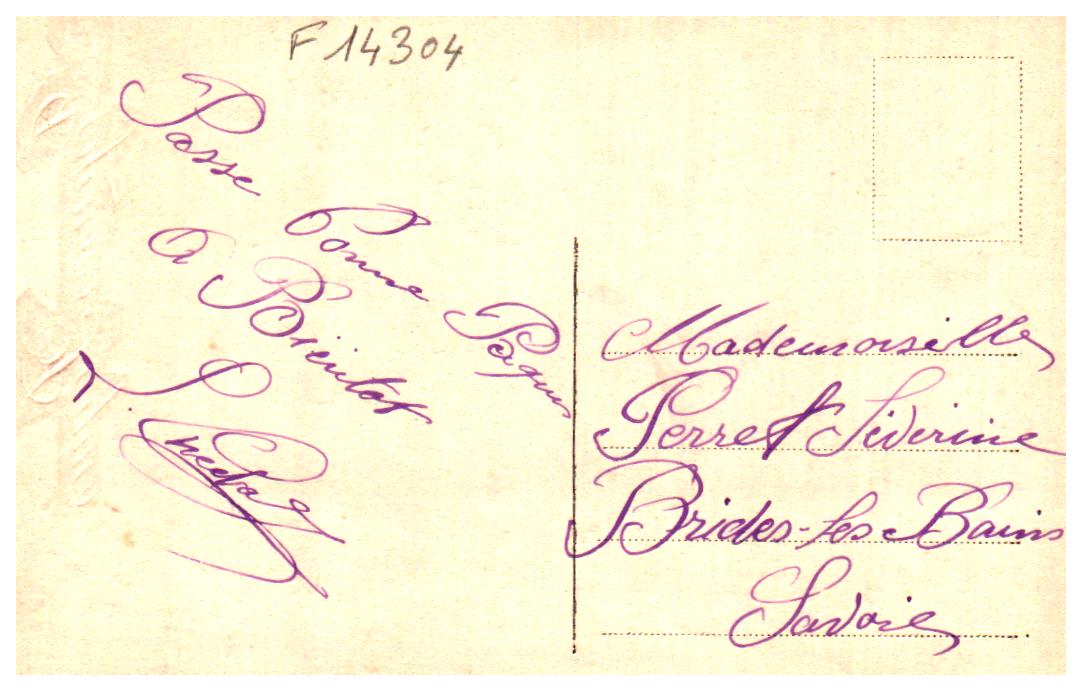 F 14304
Passe
Bonne Pâques
A Bientot
Mademoiselle
Perret Séverine
Brides-les Bains
Savoie